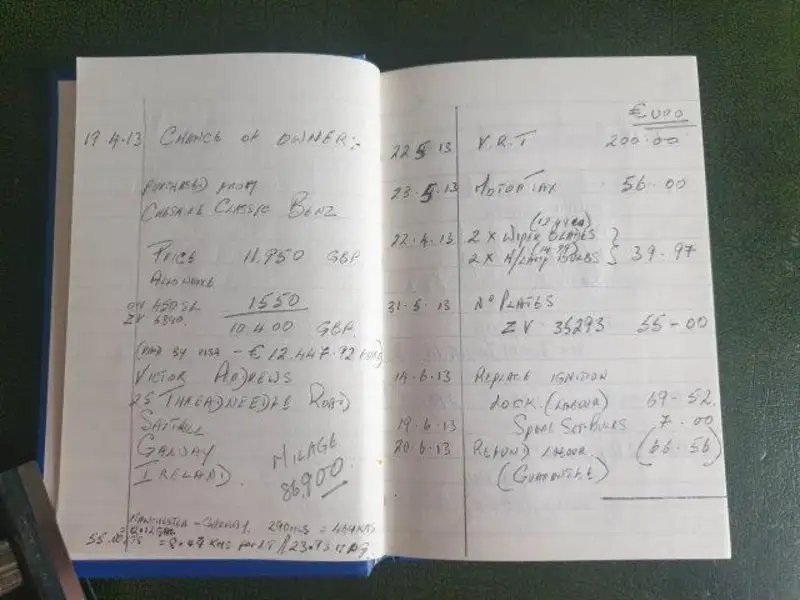 19.4.13 CHANGE OF OWNER:-
PURCHASED FROM
CHESHIRE CLASSIC BENZ
PRICE 11.950 GBP
ALLOWANCE
ON 450 SL 1550
ZV 5890.
10.400 GBP.
(PAID BY VISA - € 12.447.92 EURO)
VICTOR ANDREWS
25 THREADNEEDLE ROAD
SALTHILL
GALWAY
IRELAND.
MILAGE
86,900
MANCHESTER - 290 MLS = 464 KMS
55.00
= 8.47 KMS PER LT // 23.93
€URO
22.5.13 V.R.T 200.00
23.5.13 MOTOR TAX 56.00
22.4.13 2 X WIPER BLADES }
2 X H/LAMP BULBS } 39.97
31.5.13 No PLATES
ZV 35293 55-00
14-6-13 REPLACE IGNITION
LOCK. (LABOUR) 69-52.
19.6.13 7.00
20.6.13 REFUND LABOUR. (66-56)
(GUARANTEE)